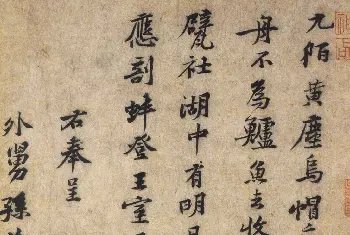 九陌黃塵烏帽
舟不為鱸魚去收
甓社湖中有明
應剖蚌登王室
右奉呈
外舅孫